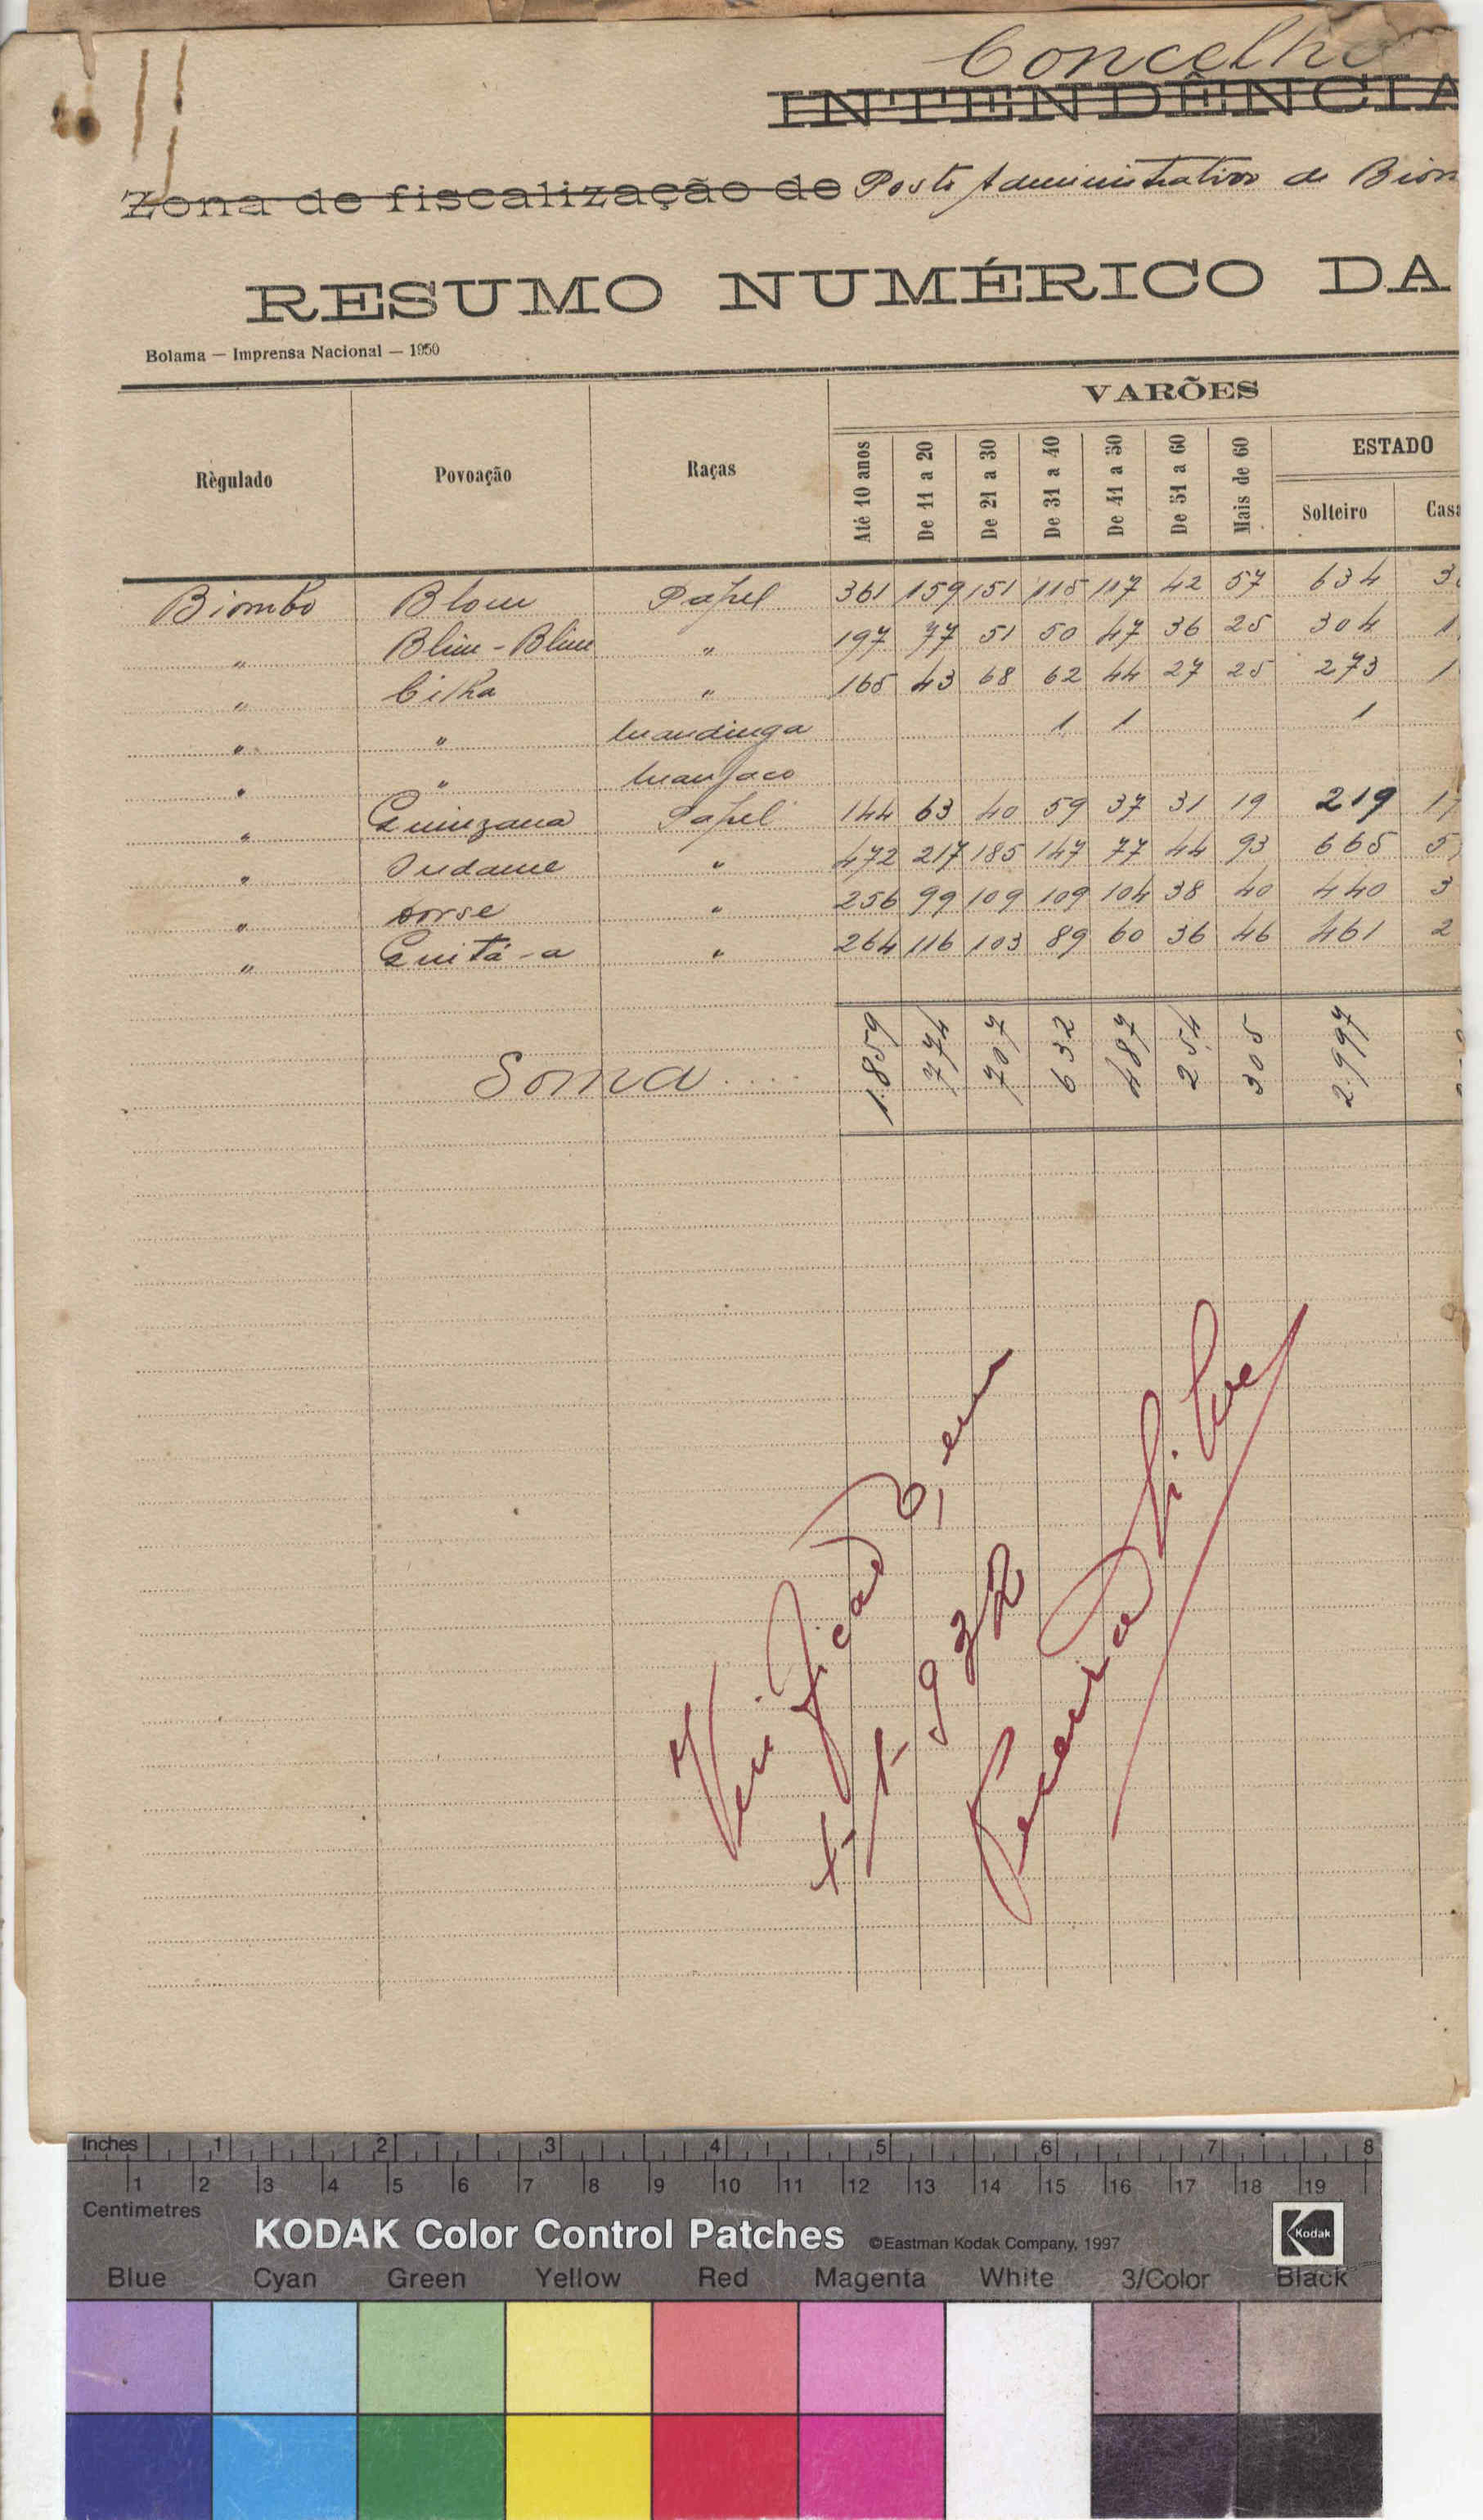 Concelho
INTENDÊNCIA
Zona de fiscalização de Posto Administrativo de Biom
RESUMO NUMÉRICO DA
Bolama — Imprensa Nacional — 1950
VARÕES
Règulado Povoação Raças Até 10 anos De 11 a 20 De 21 a 30 De 31 a 40 De 41 a 50 De 51 a 60 Mais de 60 ESTADO
Solteiro Casa
Biombo Blom Papel 361 159 151 115 117 42 57 634 3
" Blim-Blim " 197 77 51 50 47 36 25 304 1
" Cilha " 165 43 68 62 44 27 25 273 1
" " Mandinga 1 1 1
" " Manjaco
" Quinzana Papel 144 63 40 59 37 31 19 219 17
" Ondame " 472 217 185 147 77 44 93 665 5
" Dorse " 256 99 109 109 104 38 40 440 3
" Quitá-a " 264 116 103 89 60 36 46 461 2
Soma 1.859 774 707 632 487 254 305 2.997
Verificado, em
Pereira Silva
Inches 1 2 3 4 5 6 7 8
1 2 3 4 5 6 7 8 9 10 11 12 13 14 15 16 17 18 19
Centimetres
KODAK Color Control Patches ©Eastman Kodak Company, 1997 Kodak
Blue Cyan Green Yellow Red Magenta White 3/Color Black